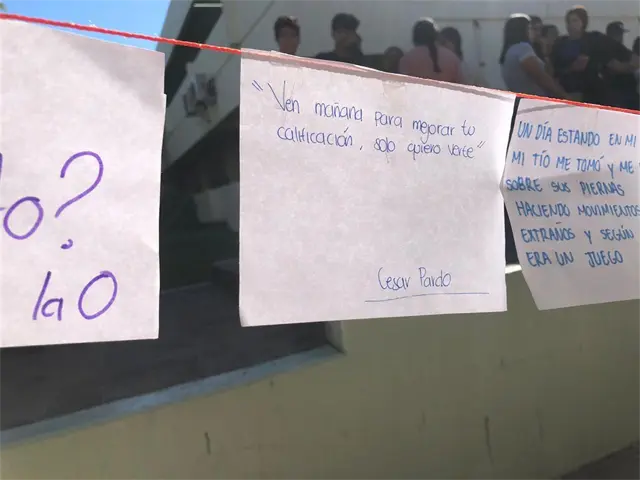 o?
la O
"Ven mañana para mejorar tu
calificación, solo quiero verte"
Cesar Pardo
UN DÍA ESTANDO EN MI
MI TÍO ME TOMÓ Y ME
SOBRE SUS PIERNAS
HACIENDO MOVIMIENTOS
EXTRAÑOS Y SEGÚN
ERA UN JUEGO